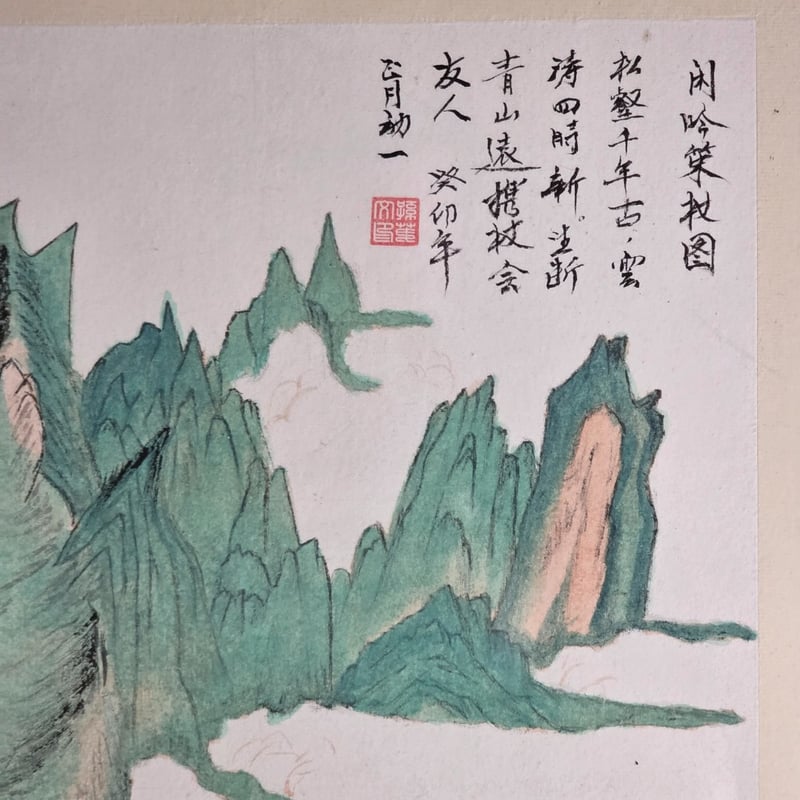 闲吟策杖图
松壑千年古、雲
涛四時新。坐断
青山遠携杖会
友人 癸卯年
正月初一